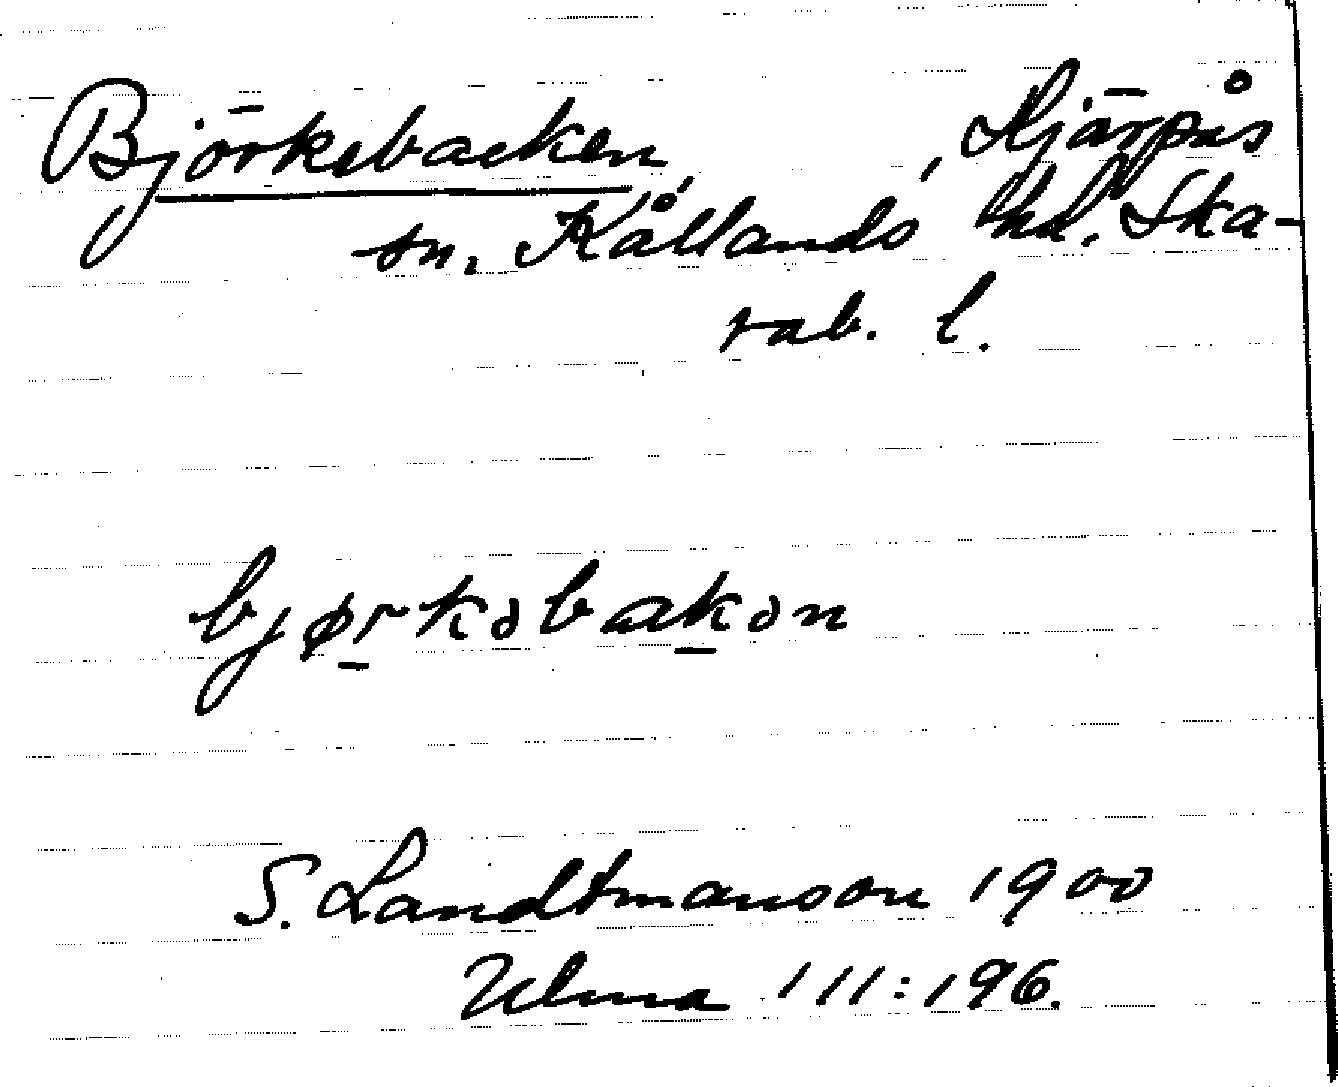 Björkebacken, Skjärpås
sn, Kållands hd, Ska-
rab. l.
bjørkəbakən
S. Landtmanson 1900
Ulma 111:196.